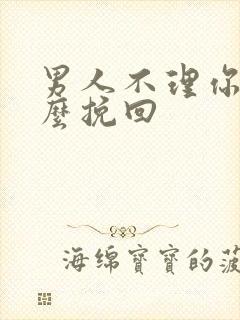 男人不理你
麼挽回
海绵寶寶的菠